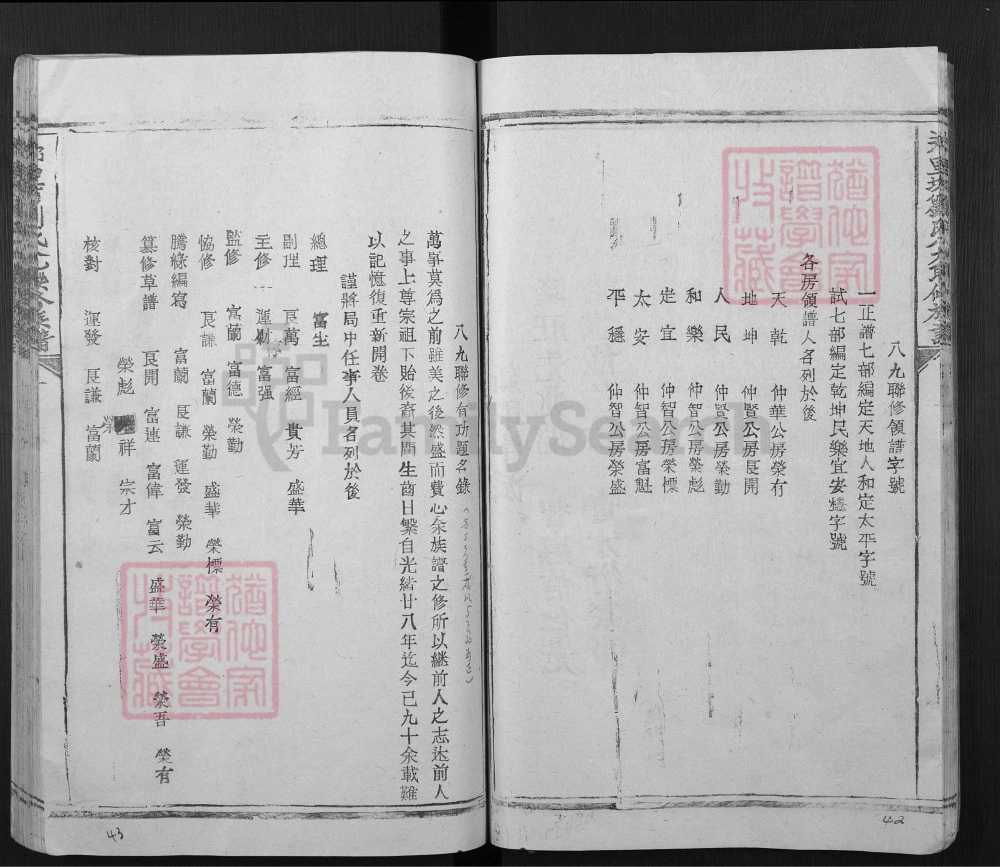 八九聯修領譜字號
一正譜七部編定天地人和定太平字號
試七部編定乾坤民樂宜安穩字號
各房領譜人名列於後
天乾 仲華公房榮有
地坤 仲賢公房良開
人民 仲賢公房榮勤
和樂 仲智公房榮彪
定宜 仲智公房榮標
太安 仲智公房富魁
平穩 仲智公房榮盛
42
八九聯修有功題名錄
萬事莫為之前雖美之後然盛而費心余族譜之修所以継前人之志述前人
之事上尊宗祖下貽後裔其間生齒日繁自光緒廿八年迄今已九十余載難
以記憶復重新開卷
謹將局中任事人員名列於後
總理 富生
副理 良萬 富經 貴芳 盛華
主修 運財 富强
監修 富蘭 富德 榮勤
恊修 良謙 富蘭 榮勤 盛華 榮標 榮有
騰綠編寫 富蘭 良謙 運發 榮勤
纂修草譜 良開 富連 富偉 富云 盛華 榮盛 榮吾 榮有
榮彪 榮祥 宗才
核對 運發 良謙 富蘭
43
猶他家譜學會收藏
猶他家譜學會收藏
FamilySearch